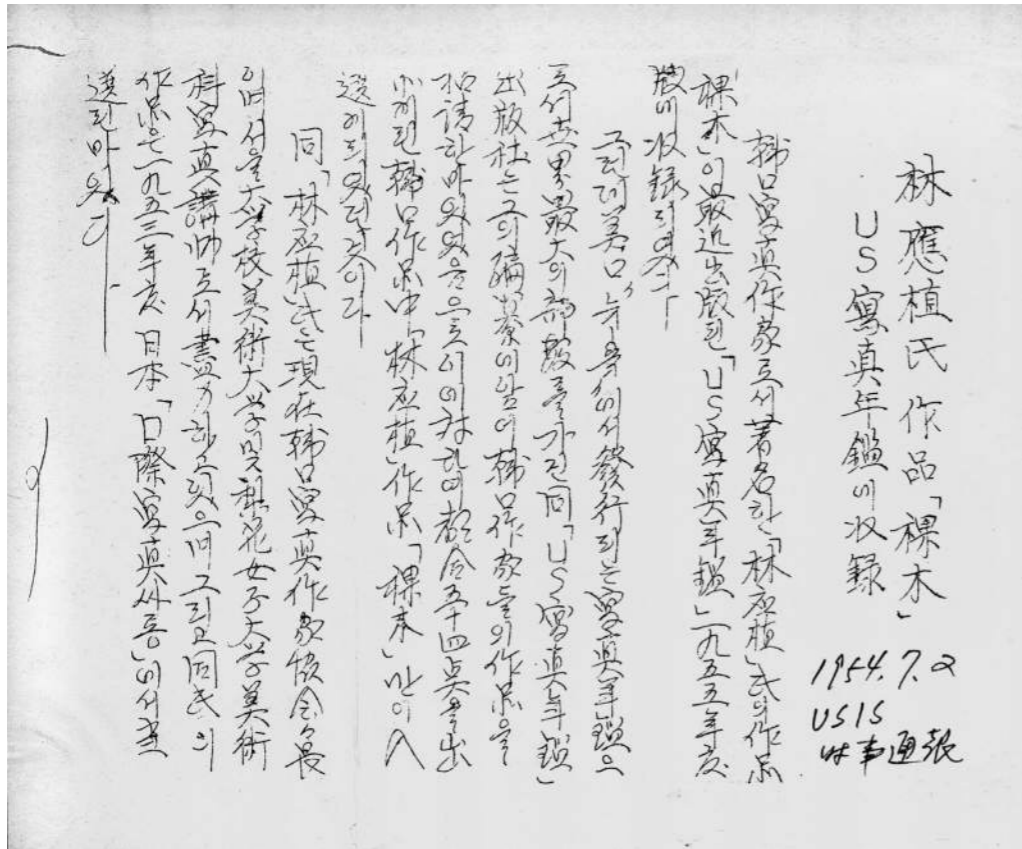 林應植氏 作品「裸木」
US 寫真年鑑에 収録
1954. 7. 2
USIS
時事通報
韓国寫真作家로서 著名한「林应植」氏의 作品
「裸木」이 最近出版된「US寫真年鑑」一九五五年度
版에 収録되였다
그런데 美国 뉴욕에서 發行되는 寫真年鑑으
로서 世界最大의 部数를 가진 同「US寫真年鑑」
出版社는 그의 編纂에 앞여 韓国作家들의 作品을
招請한바 있었음으로 이에 对하여 都合五十四点을 出
品한 韓国作品中「林应植」作品「裸木」만이 入
選이 되었던 것이다
同「林应植」氏는 現在 韓国寫真作家協会々長
이며 서울大学校美術大学 및 梨花女子大学美術
科寫真講師로서 하고 있으며 그리고 同氏의
作品은 一九五三年度 日本「国際寫真싸롱」에서 当
選된바 있다